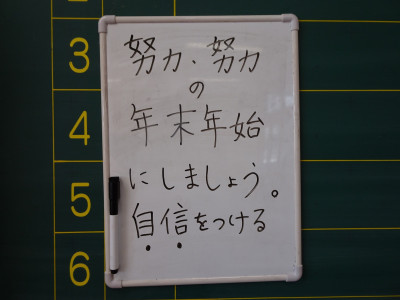 3
4
5
6
努力、努力
の
年末年始
にしましょう。
自信をつける